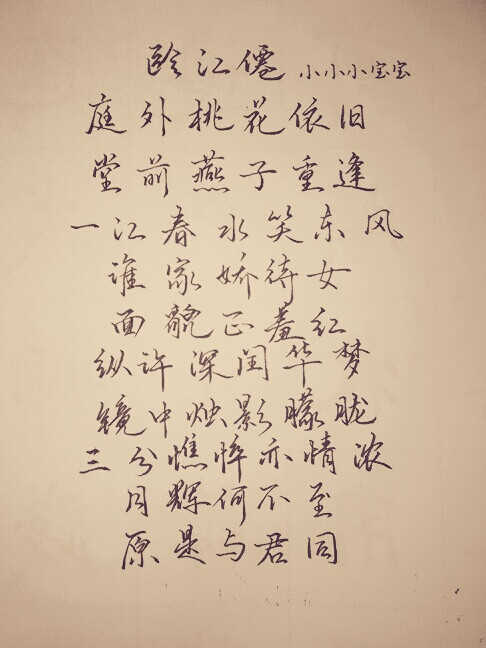 临江僊 小小小宝宝
庭外桃花依旧
堂前燕子重逢
一江春水笑东风
谁家娇待女
面靓正羞红
纵许深闺华梦
镜中烛影朦胧
三分憔悴亦情浓
月辉何不至
原是与君同